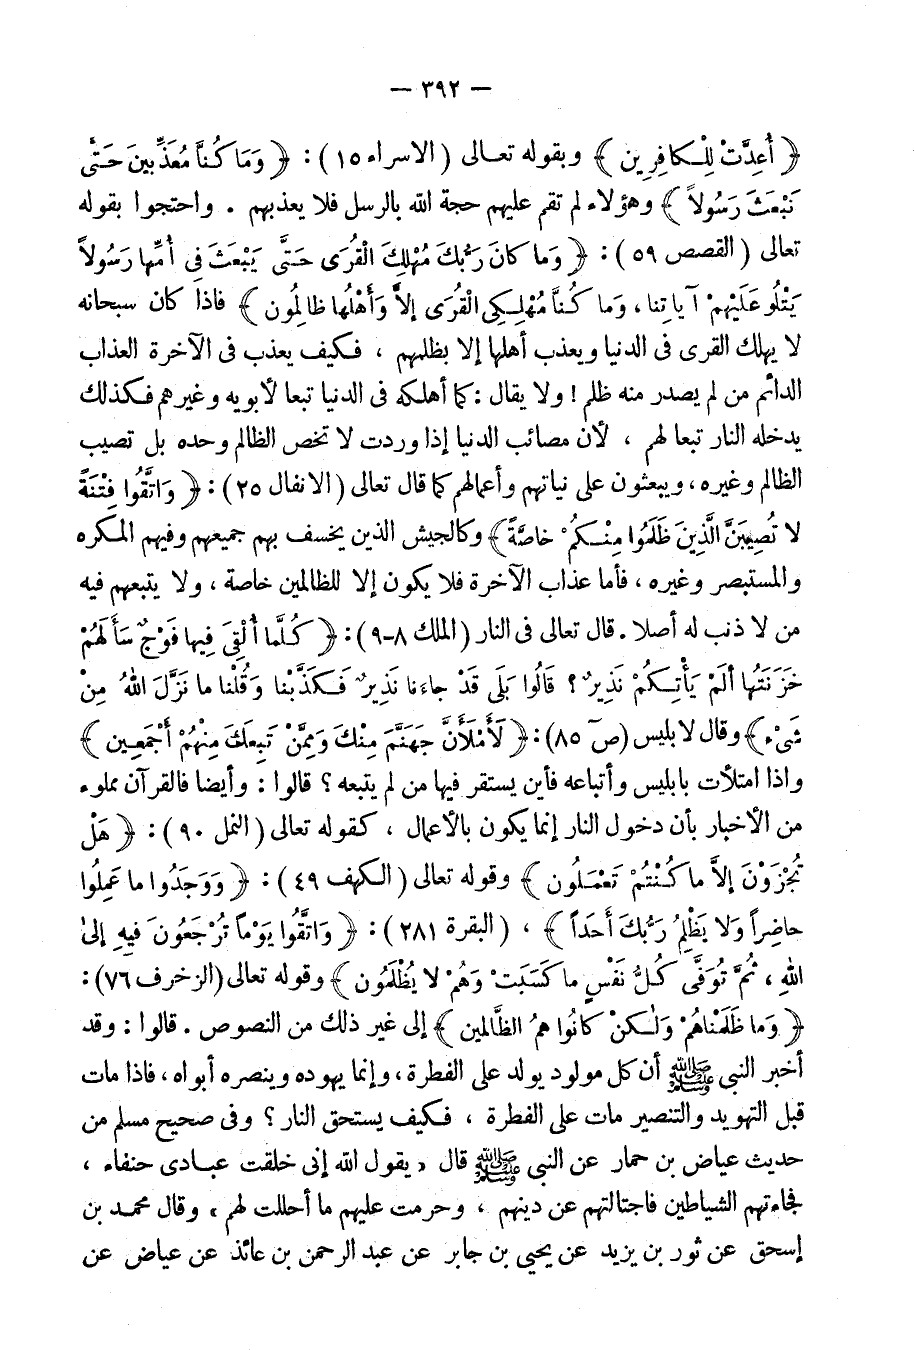 — ٣٩٢ —
﴿ أُعِدَّتْ لِلْـكافِرِين ﴾ وبقوله تعـالى (الاسراء ١٥): ﴿ وَمَا كُنَّا مُعَذِّبِينَ حَتَّى
نَبْعَثَ رَسُولاً ﴾ وهؤلاء لم تقم عليهم حجة الله بالرسل فلا يعذبهم . واحتجوا بقوله
تعالى (القصص ٥٩): ﴿ وَما كانَ رَبُّكَ مُهْلِكَ الْقُرَى حَتَّى يَبْعَثَ فِي أُمِّها رَسُولاً
يَتْلُو عَلَيْهِمْ آياتِنا، وَما كُنَّا مُهْلِـكِي الْقُرَى إلاَّ وَأَهْلُها ظالِمُون ﴾ فاذا كان سبحانه
لا يهلك القرى فى الدنيا ويعذب أهلها إلا بظلمهم ، فـكيف يعذب فى الآخرة العذاب
الدائم من لم يصدر منه ظلم ! ولا يقال : كما أهلكه فى الدنيا تبعا لأبويه وغيرهم فـكذلك
يدخله النار تبعا لهم ، لأن مصائب الدنيا إذا وردت لا تخص الظالم وحده بل تصيب
الظالم وغيره ، ويبعثون على نياتهم وأعمالهم كما قال تعالى (الانفال ٢٥): ﴿ وَاتَّقُوا فِتْنَةً
لا تُصِيبَنَّ الَّذِينَ ظَلَمُوا مِنْـكُمْ خاصَّةً ﴾ وكالجيش الذين يخسف بهم جميعهم وفيهم المـكره
والمستبصر وغيره ، فأما عذاب الآخرة فلا يكون إلا للظالمين خاصة ، ولا يتبعهم فيه
من لا ذنب له أصلا . قال تعالى فى النار (الملك ٨-٩): ﴿ كُـلَّما أُلْقِيَ فِيها فَوْجٌ سَأَلَهُمْ
خَزَنَتُها أَلَمْ يَأْتِـكُمْ نَذِيرٌ ؟ قَالُوا بَلَى قَدْ جاءَنا نَذِيرٌ فَـكَذَّبْنا وَقُلْنا ما نَزَّلَ اللهُ مِنْ
شَيْء ﴾ وقال لابليس (صٓ ٨٥): ﴿ لَأَمْلَأَنَّ جَهَنَّمَ مِنْكَ وَمِمَّنْ تَبِعَكَ مِنْهُمْ أَجْمَعِـين ﴾
واذا امتلأت بابليس وأتباعه فأين يستقر فيها من لم يتبعه ؟ قالوا : وأيضا فالقرآن مملوء
من الأخبار بأن دخول النار إنما يكون بالأعمال ، كقوله تعالى (النمل ٩٠): ﴿ هَلْ
تُجْزَوْنَ إلاَّ ما كُـنْتُمْ تَعْمَـلُون ﴾ وقوله تعالى (الـكهف ٤٩): ﴿ وَوَجَدُوا ما عَمِلُوا
حاضِراً وَلا يَظْلِمُ رَبُّكَ أَحَداً ﴾ ، (البقرة ٢٨١): ﴿ وَاتَّقُوا يَوْماً تُرْجَعُونَ فِيهِ إلىٰ
اللهِ ، ثُمَّ تُوَفَّى كُـلُّ نَفْسٍ ما كَسَبَتْ وَهُمْ لا يُظْلَمُون ﴾ وقوله تعالى (الزخرف ٧٦):
﴿ وَما ظَلَمْناهُمْ وَلٰـكِنْ كانُوا هُمُ الظَّالمين ﴾ إلى غير ذلك من النصوص . قالوا : وقد
أخبر النبى ﷺ أن كل مولود يولد على الفطرة ، وإنما يهوده وينصره أبواه ، فاذا مات
قبل التهويد والتنصير مات على الفطرة ، فـكيف يستحق النار ؟ وفى صحيح مسلم من
حديث عياض بن حمار عن النبى ﷺ قال « يقول الله إنى خلقت عبـادى حنفاء ،
فجاءتهم الشياطين فاجتالتهم عن دينهم ، وحرمت عليهم ما أحللت لهم » وقال محمـد بن
إسحق عن ثور بن يزيد عن يحيى بن جابر عن عبد الرحمن بن عائذ عن عياض عن